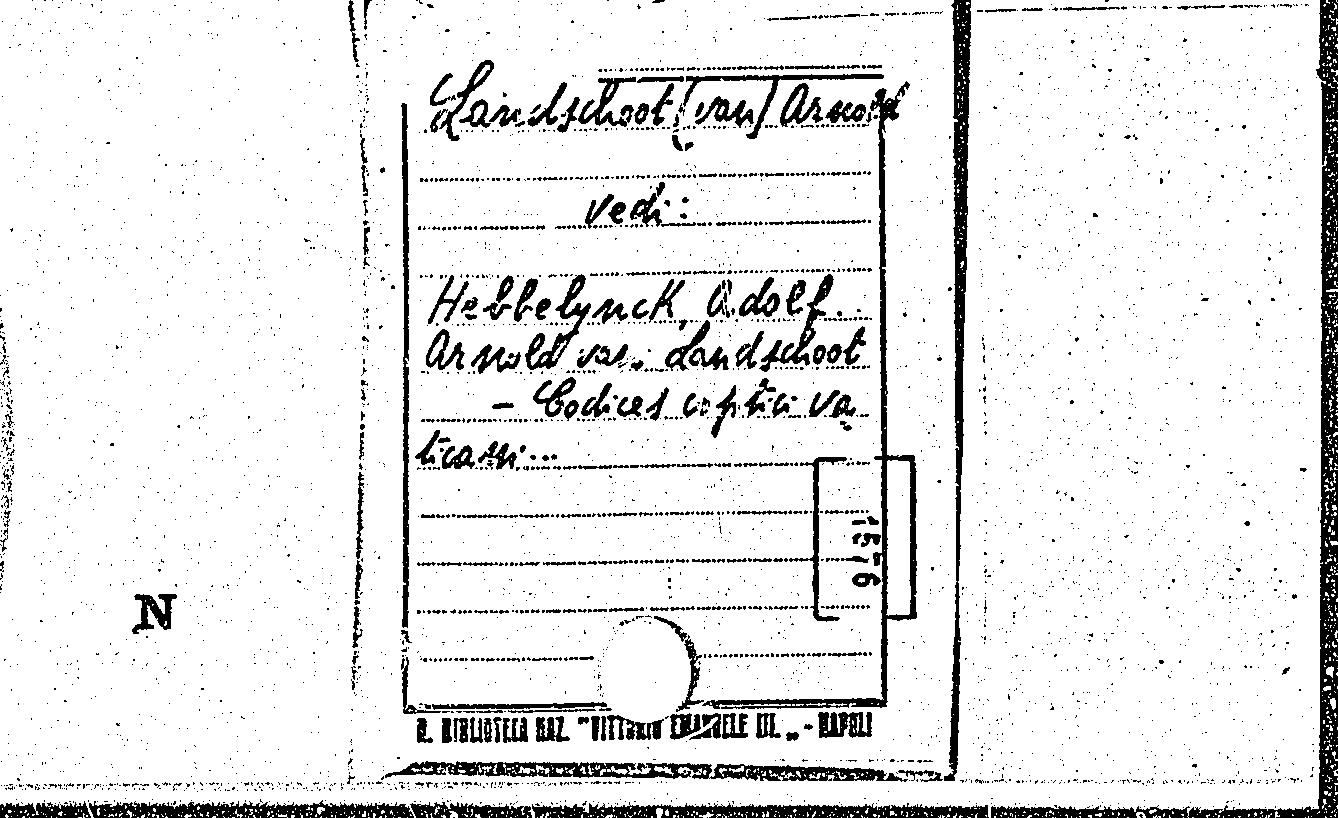 Landschoot (van) Arnold
vedi:
Hebbelynck, Adolf..
Arnold van Landschoot
- Codices coptici va
ticani...
N
R. BIBLIOTECA NAZ. "VITTORIO EMANUELE III. „ - NAPOLI